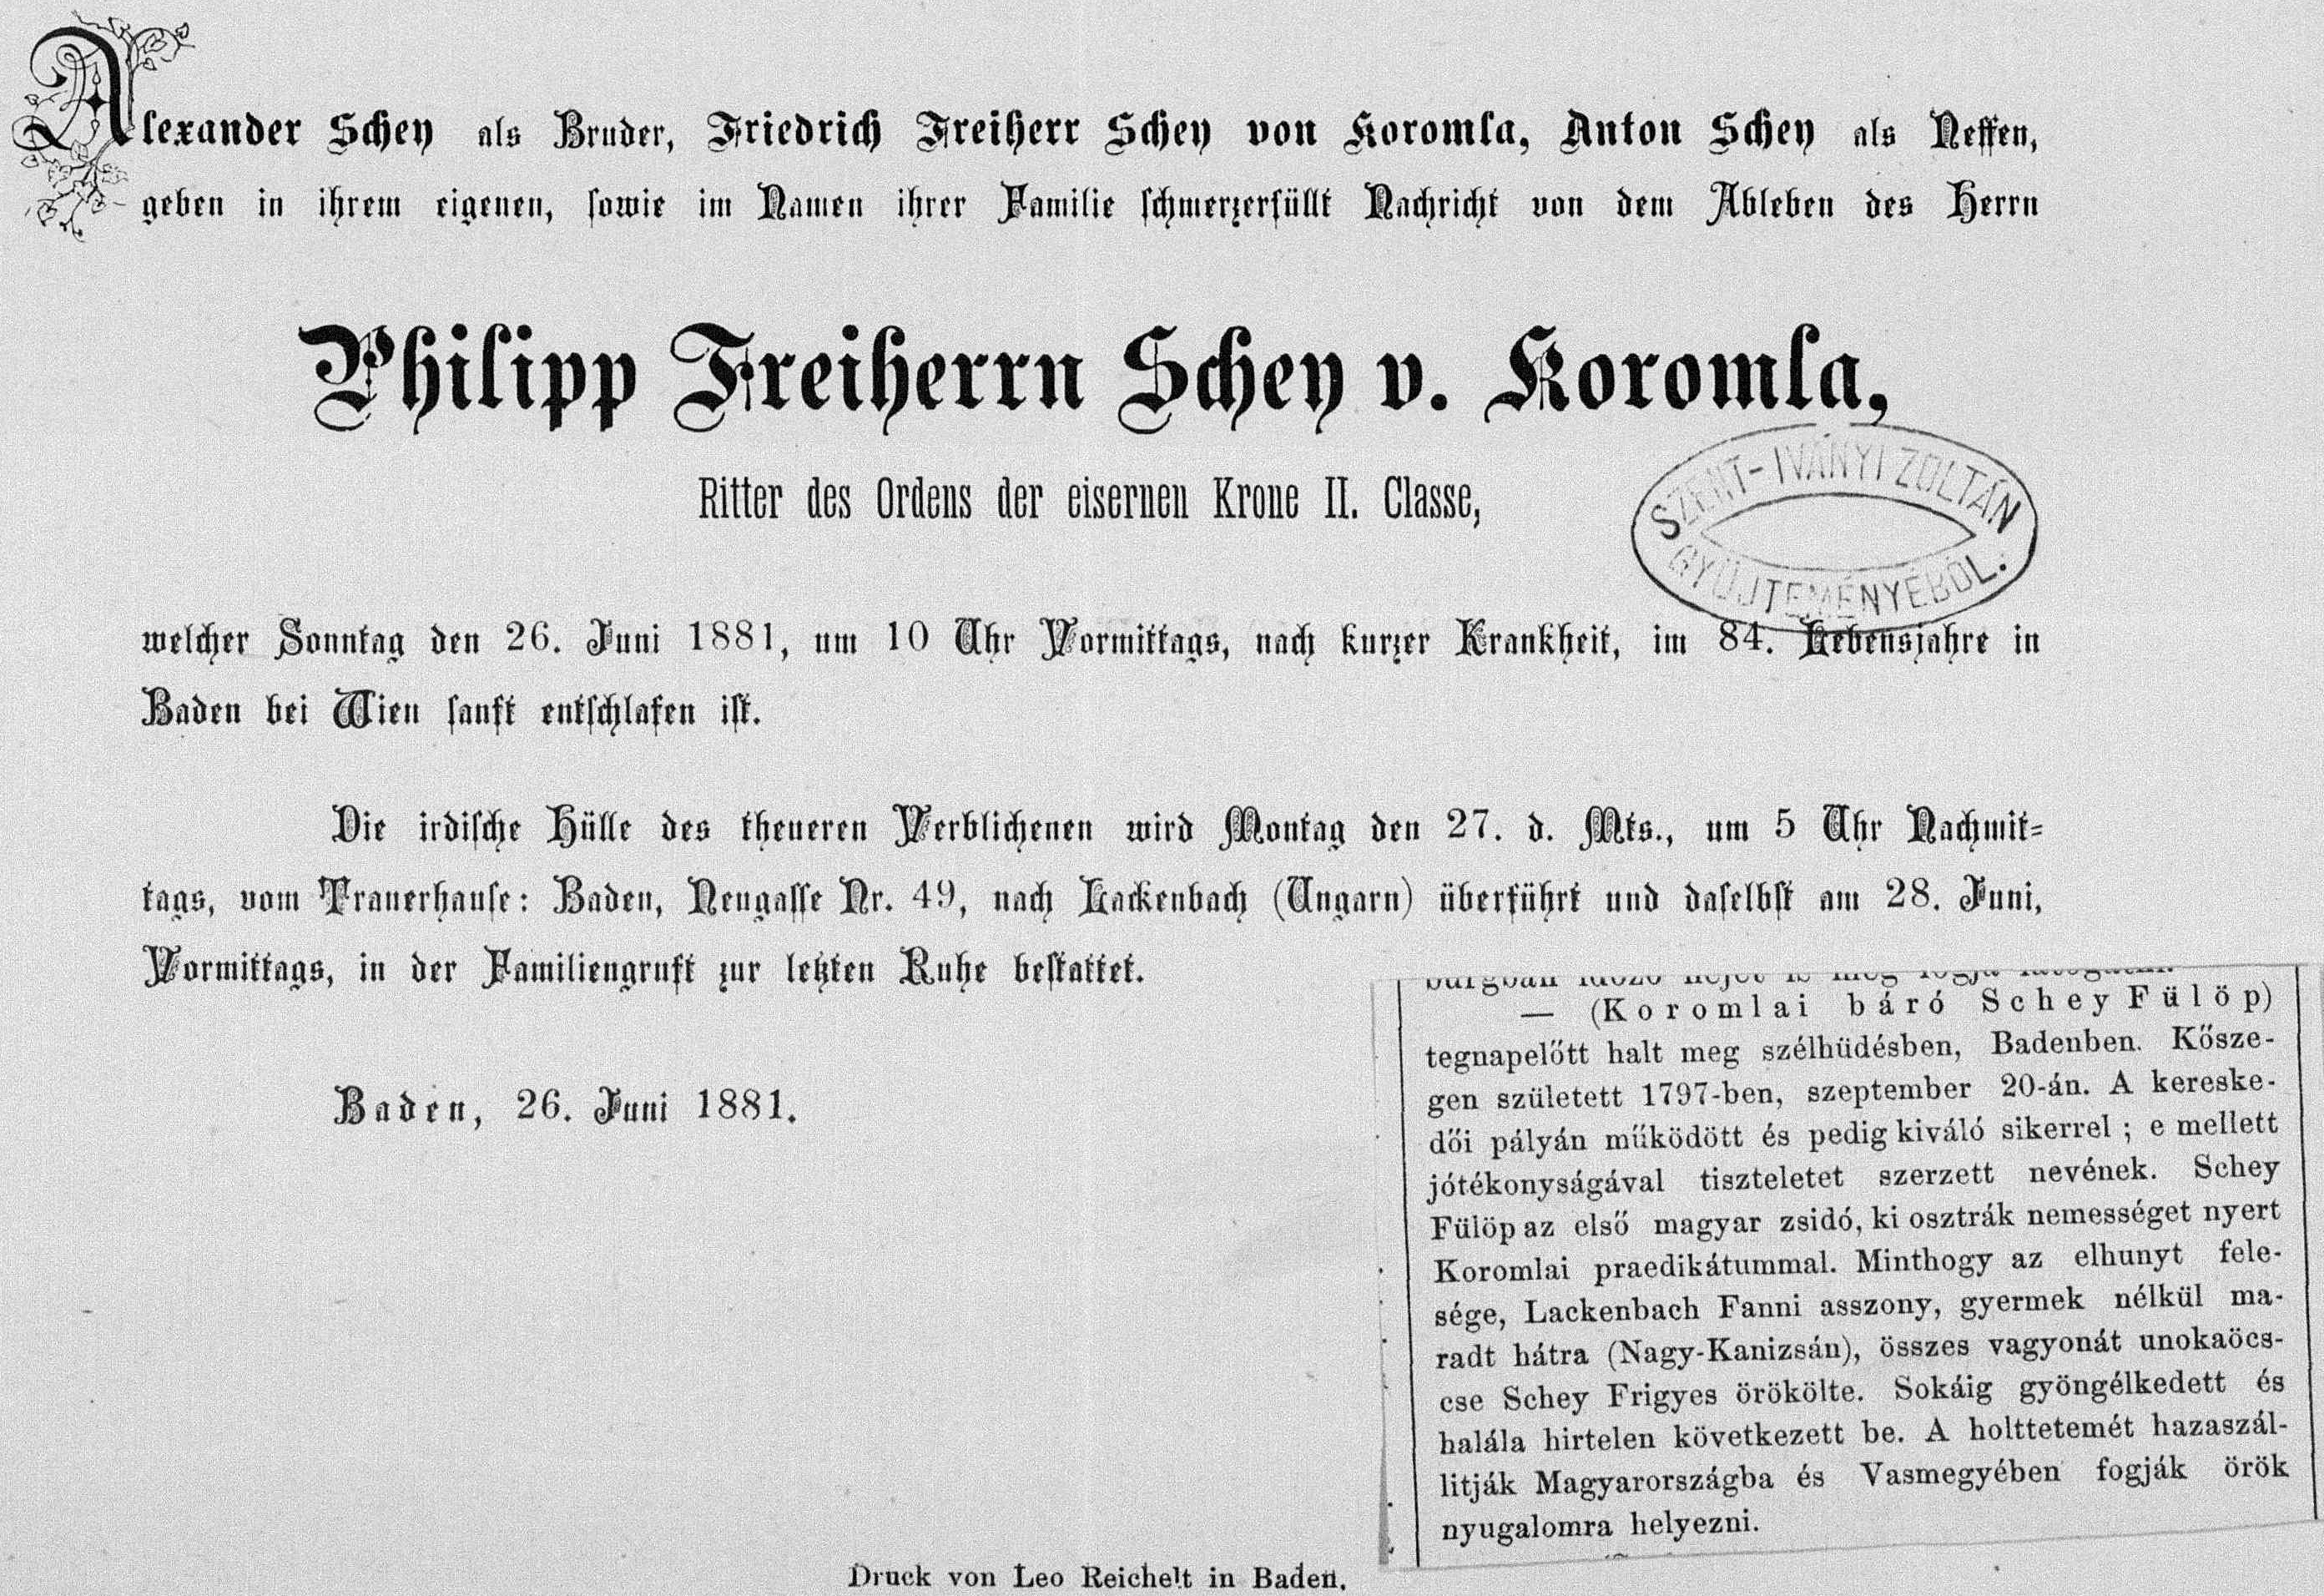 Alexander Schey als Bruder, Friedrich Freiherr Schey von Koromla, Anton Schey als Neffen,
geben in ihrem eigenen, sowie im Namen ihrer Familie schmerzerfüllt Nachricht von dem Ableben des Herrn
Philipp Freiherrn Schey v. Koromla,
Ritter des Ordens der eisernen Krone II. Classe,
SZENT-IVÁNYI ZOLTÁN
GYŰJTEMÉNYÉBŐL.
welcher Sonntag den 26. Juni 1881, um 10 Uhr Vormittags, nach kurzer Krankheit, im 84. Lebensjahre in
Baden bei Wien sanft entschlafen ist.
Die irdische Hülle des theueren Verblichenen wird Montag den 27. d. Mts., um 5 Uhr Nachmit-
tags, vom Trauerhause: Baden, Neugasse Nr. 49, nach Lackenbach (Ungarn) überführt und daselbst am 28. Juni,
Vormittags, in der Familiengruft zur letzten Ruhe bestattet.
Baden, 26. Juni 1881.
— (Koromlai báró Schey Fülöp)
tegnapelőtt halt meg szélhüdésben, Badenben. Kősze-
gen született 1797-ben, szeptember 20-án. A kereske-
dői pályán működött és pedig kiváló sikerrel ; e mellett
jótékonyságával tiszteletet szerzett nevének. Schey
Fülöp az első magyar zsidó, ki osztrák nemességet nyert
Koromlai praedikátummal. Minthogy az elhunyt fele-
sége, Lackenbach Fanni asszony, gyermek nélkül ma-
radt hátra (Nagy-Kanizsán), összes vagyonát unokaöcs-
cse Schey Frigyes örökölte. Sokáig gyöngélkedett és
halála hirtelen következett be. A holttetemét hazaszál-
litják Magyarországba és Vasmegyében fogják örök
nyugalomra helyezni.
Druck von Leo Reichelt in Baden.